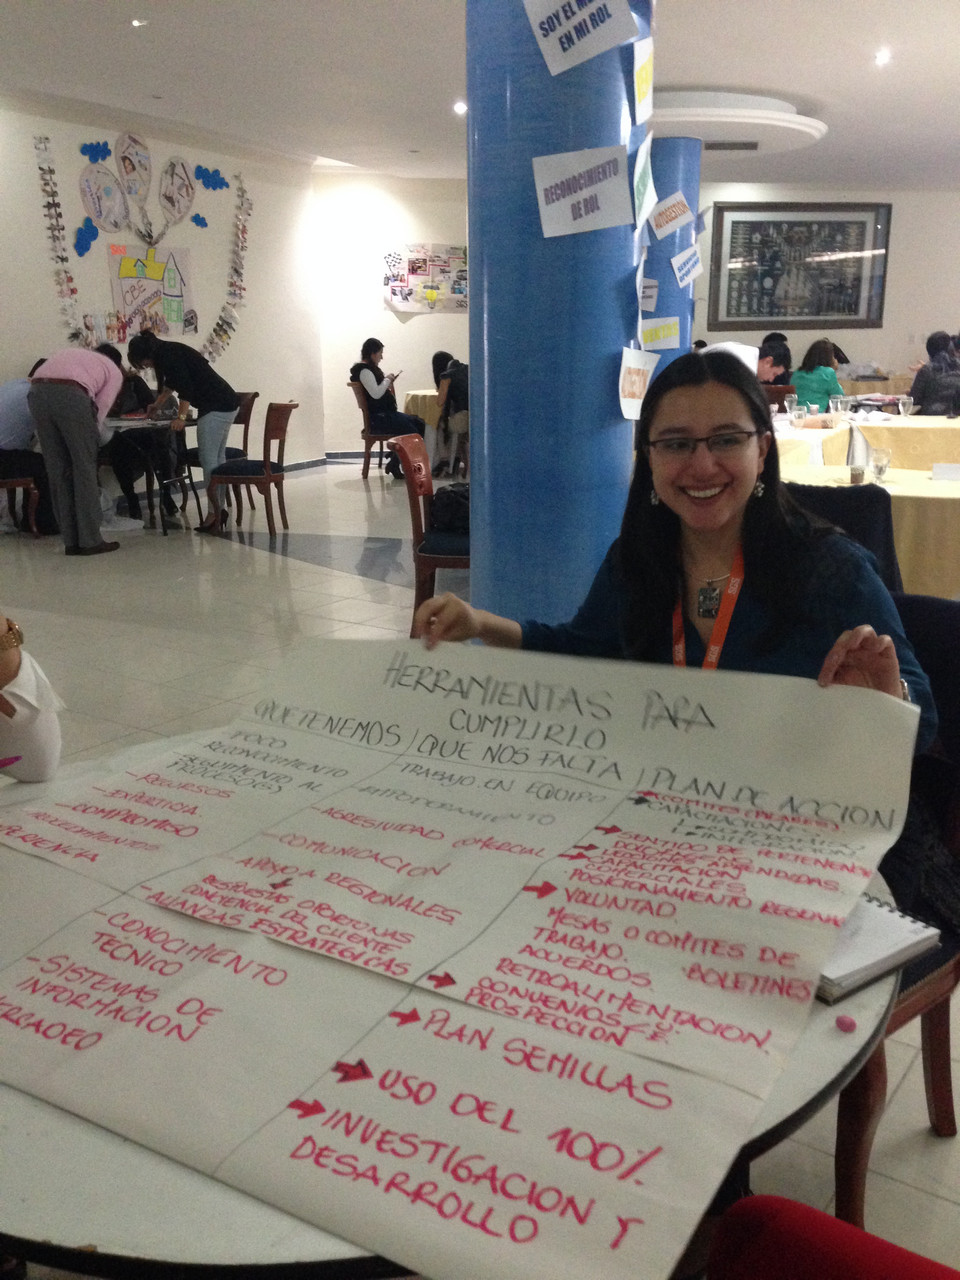 SOY EL ME
EN MI ROL
RECONOCIMIENTO
DE ROL
AUTOGESTION
SGS
CBE
SGS
SGS
HERRAMIENTAS PARA
CUMPLIRLO
QUE TENEMOS / QUE NOS FALTA / PLAN DE ACCION
FOCO
RECONOCIMIENTO
-SEGUIMIENTO AL
PROCESO(S)
-RECURSOS
-EXPERTICIA
-COMPROMISO
-CONOCIMIENTO
TECNICO
-SISTEMAS DE
INFORMACION
-TRABAJO EN EQUIPO
-EMPODERAMIENTO
-AGRESIVIDAD COMERCIAL
-COMUNICACION
-APOYO A REGIONALES
RESPUESTAS OPORTUNAS
COMPETENCIA DEL CLIENTE
-ALIANZAS ESTRATEGICAS
CAPACITACIONES
INTEGRACION
SENTIDO DE PERTENENCIA
CAPACITACION
COMERCIALES
POSICIONAMIENTO REGIONAL
VOLUNTAD.
MESAS O COMITES DE
TRABAJO. BOLETINES
ACUERDOS.
RETROALIMENTACION.
CONVENIOS
PROSPECCION
PLAN SEMILLAS
USO DEL 100%
INVESTIGACION Y
DESARROLLO